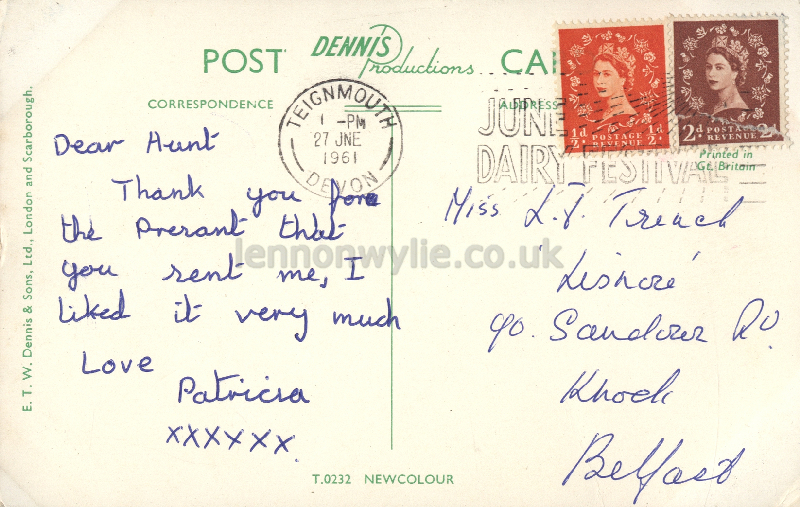 POST CA
DENNIS
Productions
CORRESPONDENCE
ADDRESS
TEIGNMOUTH
1 -PM
27 JNE
1961
DEVON
JUNE IS
DAIRY FESTIVAL
½d ½d
POSTAGE
REVENUE
2d POSTAGE 2d
REVENUE
Printed in
Gt. Britain
E. T. W. Dennis & Sons, Ltd., London and Scarborough.
Dear Aunt
Thank you fore
the Presant that
you sent me, I
liked it very much
Love
Patricia
xxxxxx.
Miss L. J. Trench
'Lismore'
90. Sandown Rd
Knock
Belfast
T.0232 NEWCOLOUR
lennonwylie.co.uk